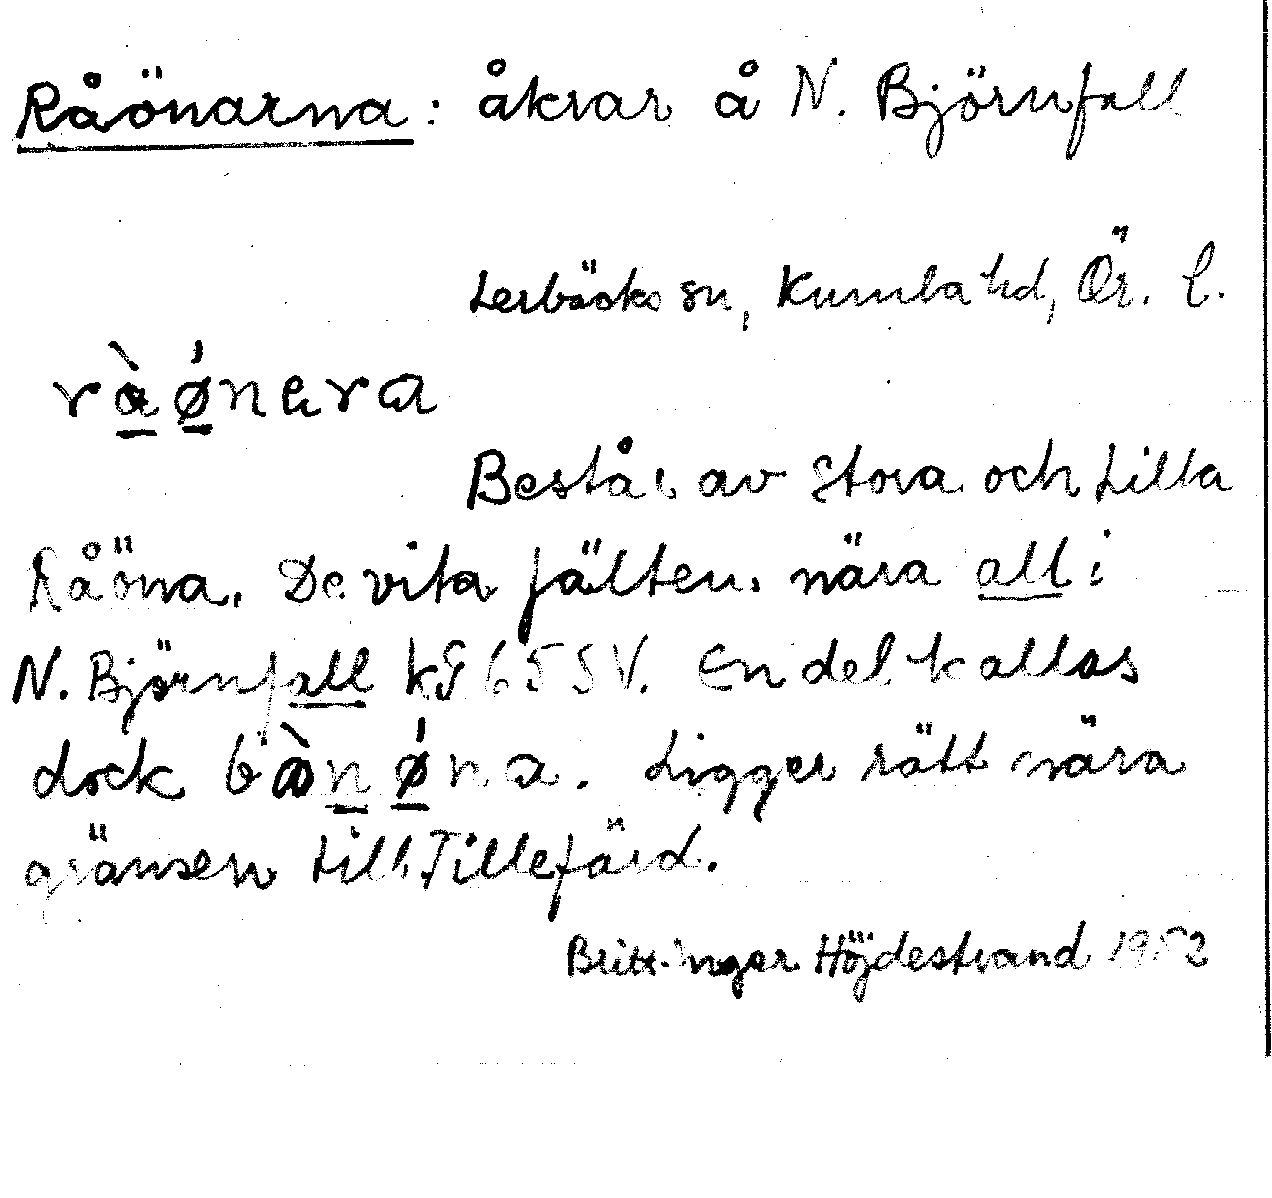 Råönarna: åkrar å N. Björnfall
Lerbäcks sn, Kumla hd, Ör. l.
rà ǿnara
Består av Stora och Lilla
Råöna. De vita fälten nära all i
N. Björnfall kg 65 SV. En del kallas
dock bànǿna. Ligger rätt nära
gränsen till Tillefärd.
Britt-Inger Höjdestrand 1952